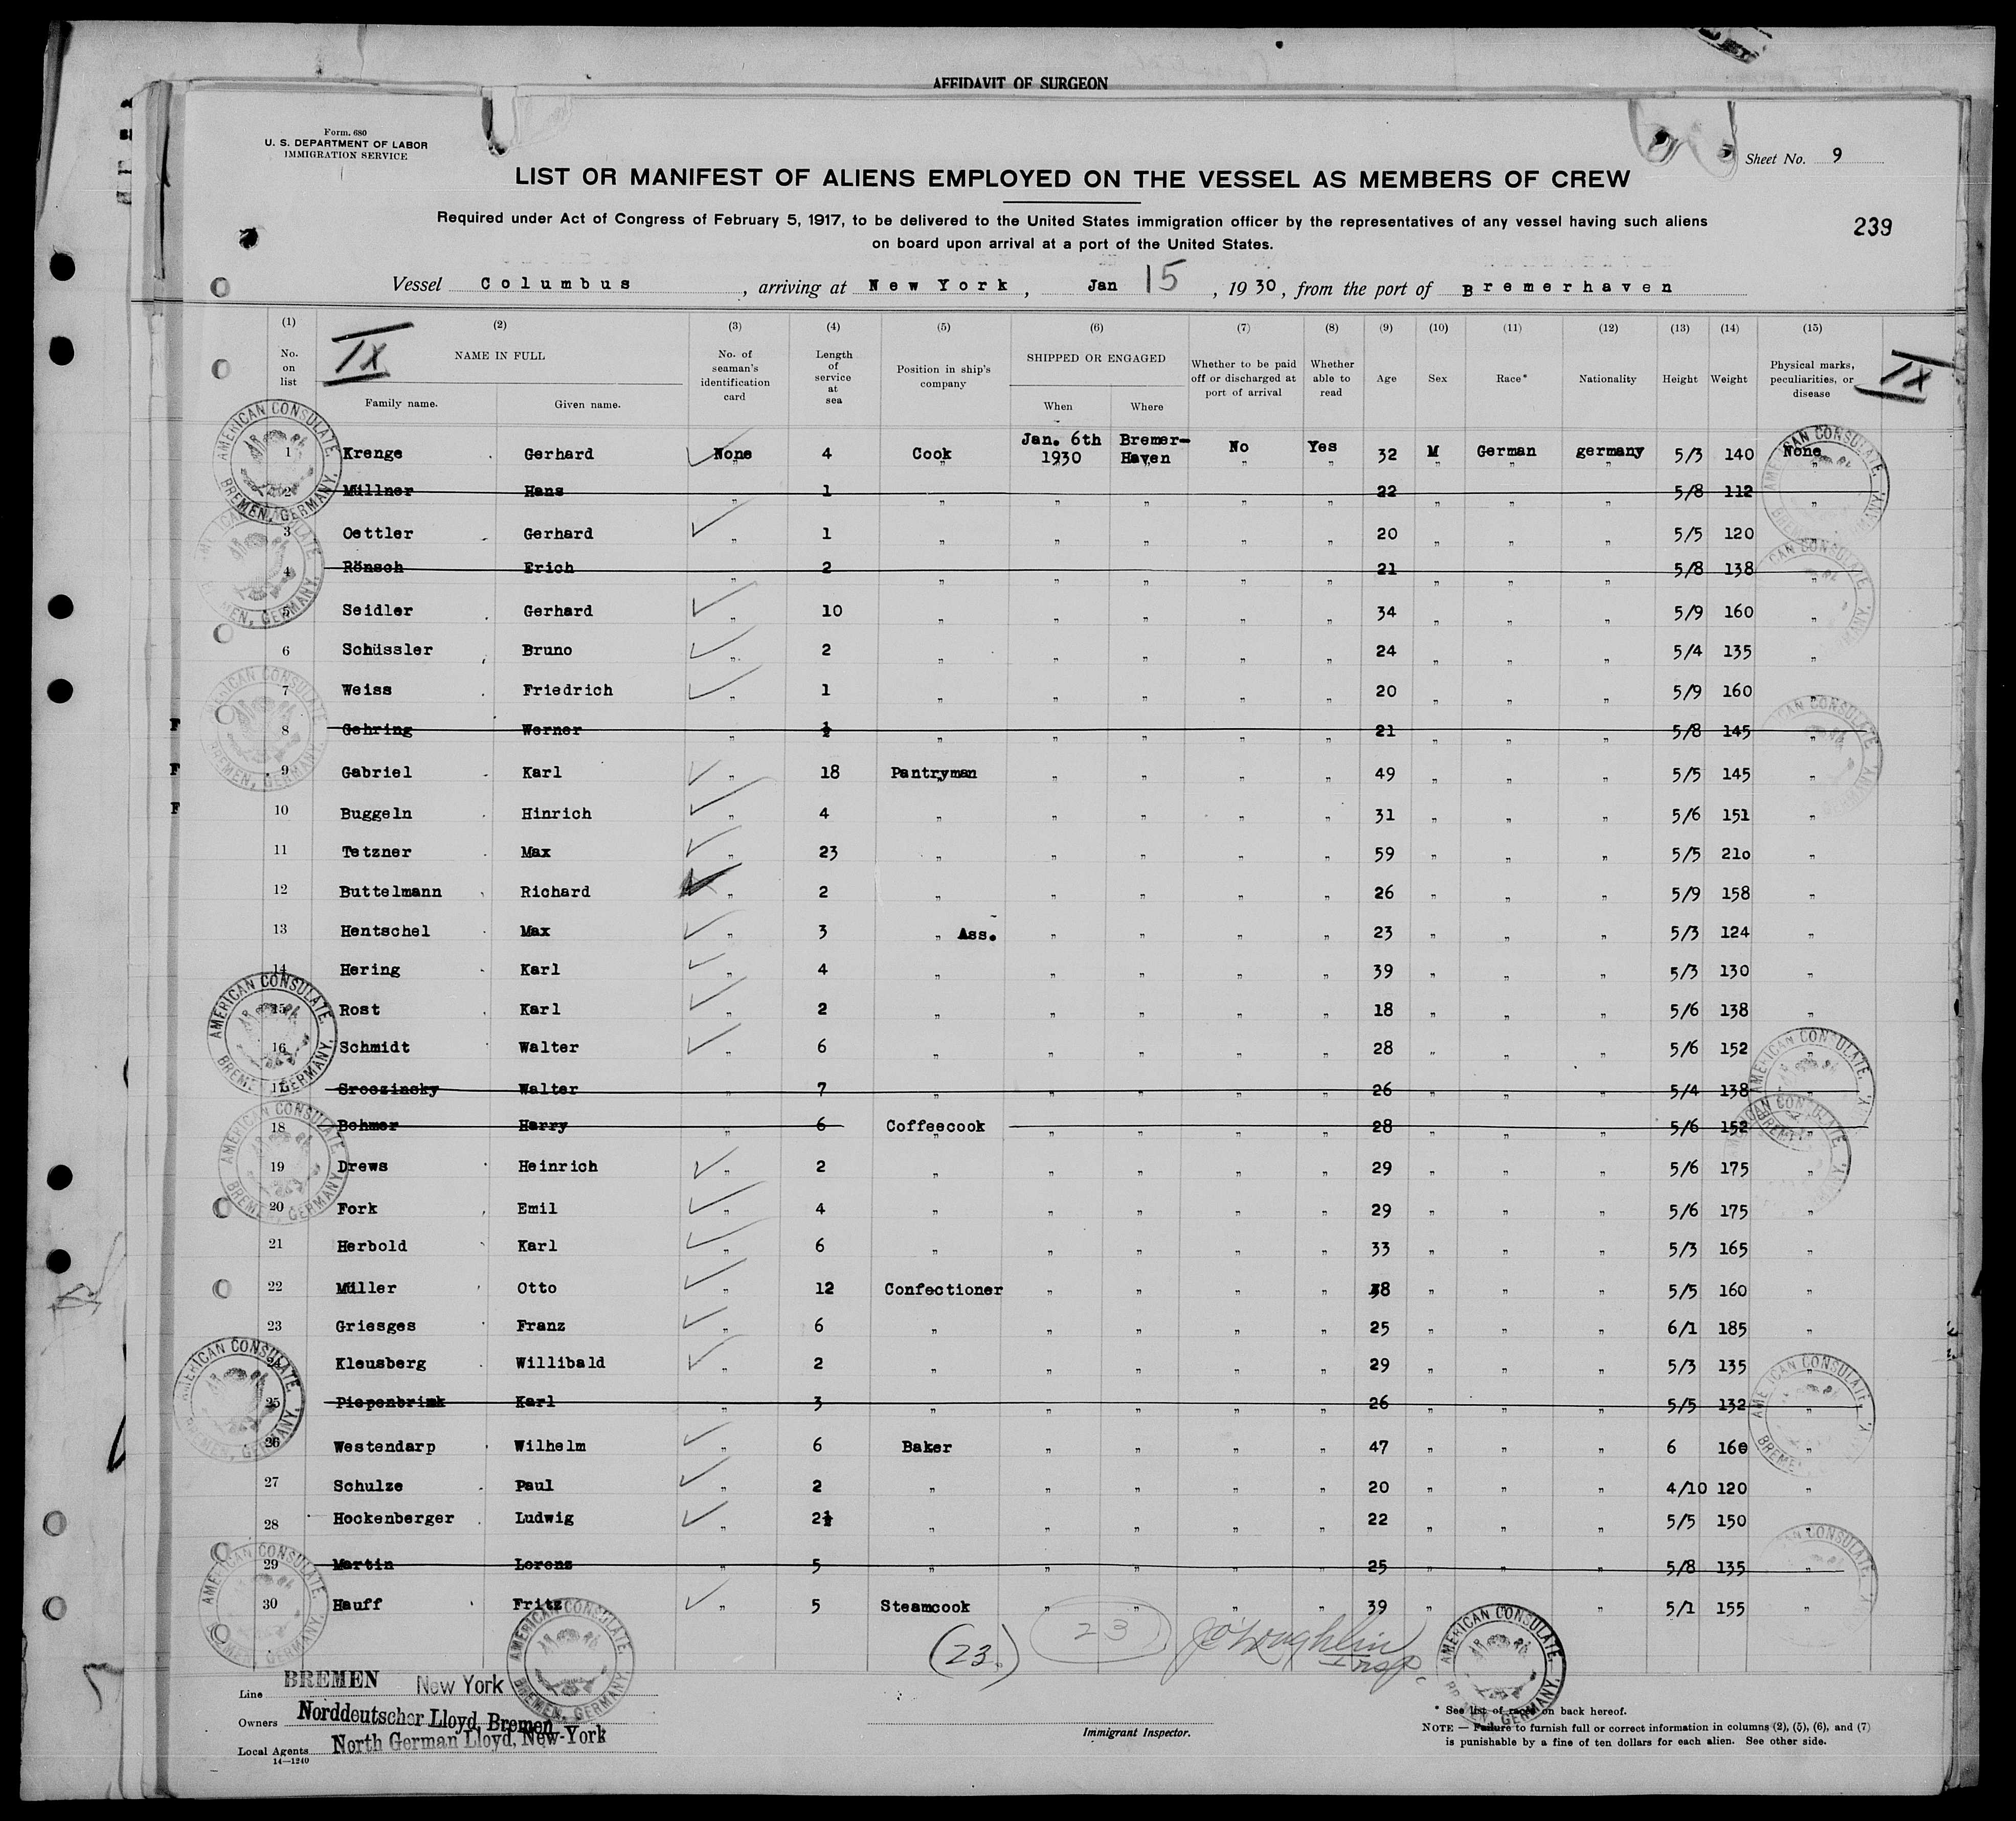 AFFIDAVIT OF SURGEON
Form. 680
U. S. DEPARTMENT OF LABOR
IMMIGRATION SERVICE
Sheet No. 9
LIST OR MANIFEST OF ALIENS EMPLOYED ON THE VESSEL AS MEMBERS OF CREW
Required under Act of Congress of February 5, 1917, to be delivered to the United States immigration officer by the representatives of any vessel having such aliens
on board upon arrival at a port of the United States.
239
Vessel Columbus, arriving at New York, Jan 15, 1930, from the port of Bremerhaven
(1) (2) (3) (4) (5) (6) (7) (8) (9) (10) (11) (12) (13) (14) (15)
IX IX
No. on list NAME IN FULL Family name. Given name. No. of seaman's identification card Length of service at sea Position in ship's company SHIPPED OR ENGAGED When Where Whether to be paid off or discharged at port of arrival Whether able to read Age Sex Race* Nationality Height Weight Physical marks, peculiarities, or disease
1 Krenge Gerhard None 4 Cook Jan. 6th 1930 Bremer-Haven No Yes 32 M German germany 5/3 140 None
2 Müllner Hans " 1 " " " " " 22 " " " 5/8 112 "
3 Oettler Gerhard " 1 " " " " " 20 " " " 5/5 120 "
4 Rönsch Erich " 2 " " " " " 21 " " " 5/8 138 "
5 Seidler Gerhard " 10 " " " " " 34 " " " 5/9 160 "
6 Schüssler Bruno " 2 " " " " " 24 " " " 5/4 135 "
7 Weiss Friedrich " 1 " " " " " 20 " " " 5/9 160 "
F 8 Gehring Werner " ½ " " " " " 21 " " " 5/8 145 "
F 9 Gabriel Karl " 18 Pantryman " " " " 49 " " " 5/5 145 "
F 10 Buggeln Hinrich " 4 " " " " " 31 " " " 5/6 151 "
11 Tetzner Max " 23 " " " " " 59 " " " 5/5 210 "
12 Buttelmann Richard " 2 " " " " " 26 " " " 5/9 158 "
13 Hentschel Max " 3 " Ass. " " " " 23 " " " 5/3 124 "
14 Hering Karl " 4 " " " " " 39 " " " 5/3 130 "
15 Rost Karl " 2 " " " " " 18 " " " 5/6 138 "
16 Schmidt Walter " 6 " " " " " 28 " " " 5/6 152 "
17 Sroczinsky Walter " 7 " " " " " 26 " " " 5/4 138 "
18 Bohmer Harry " 6 Coffeecook " " " " 28 " " " 5/6 152 "
19 Drews Heinrich " 2 " " " " " 29 " " " 5/6 175 "
20 Fork Emil " 4 " " " " " 29 " " " 5/6 175 "
21 Herbold Karl " 6 " " " " " 33 " " " 5/3 165 "
22 Müller Otto " 12 Confectioner " " " " 38 " " " 5/5 160 "
23 Griesges Franz " 6 " " " " " 25 " " " 6/1 185 "
24 Kleusberg Willibald " 2 " " " " " 29 " " " 5/3 135 "
25 Piepenbrink Karl " 3 " " " " " 26 " " " 5/5 132 "
26 Westendarp Wilhelm " 6 Baker " " " " 47 " " " 6 160 "
27 Schulze Paul " 2 " " " " " 20 " " " 4/10 120 "
28 Hockenberger Ludwig " 2½ " " " " " 22 " " " 5/5 150 "
29 Martin Lorenz " 5 " " " " " 25 " " " 5/8 135 "
30 Hauff Fritz " 5 Steamcook " " " " 39 " " " 5/1 155 "
(23.) 23 J O'Loughlin Insp.
AMERICAN CONSULATE, BREMEN, GERMANY.
Line BREMEN New York
Owners Norddeutscher Lloyd, Bremen
Local Agents North German Lloyd, New-York
14—1240
Immigrant Inspector.
* See list of races on back hereof.
NOTE — Failure to furnish full or correct information in columns (2), (5), (6), and (7)
is punishable by a fine of ten dollars for each alien. See other side.